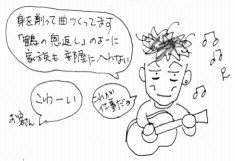 身を削って曲つくってます
「鶴の恩返し」のよーに
家族も部屋に入れない
こわーい
お客さん
これが
仕事だョ